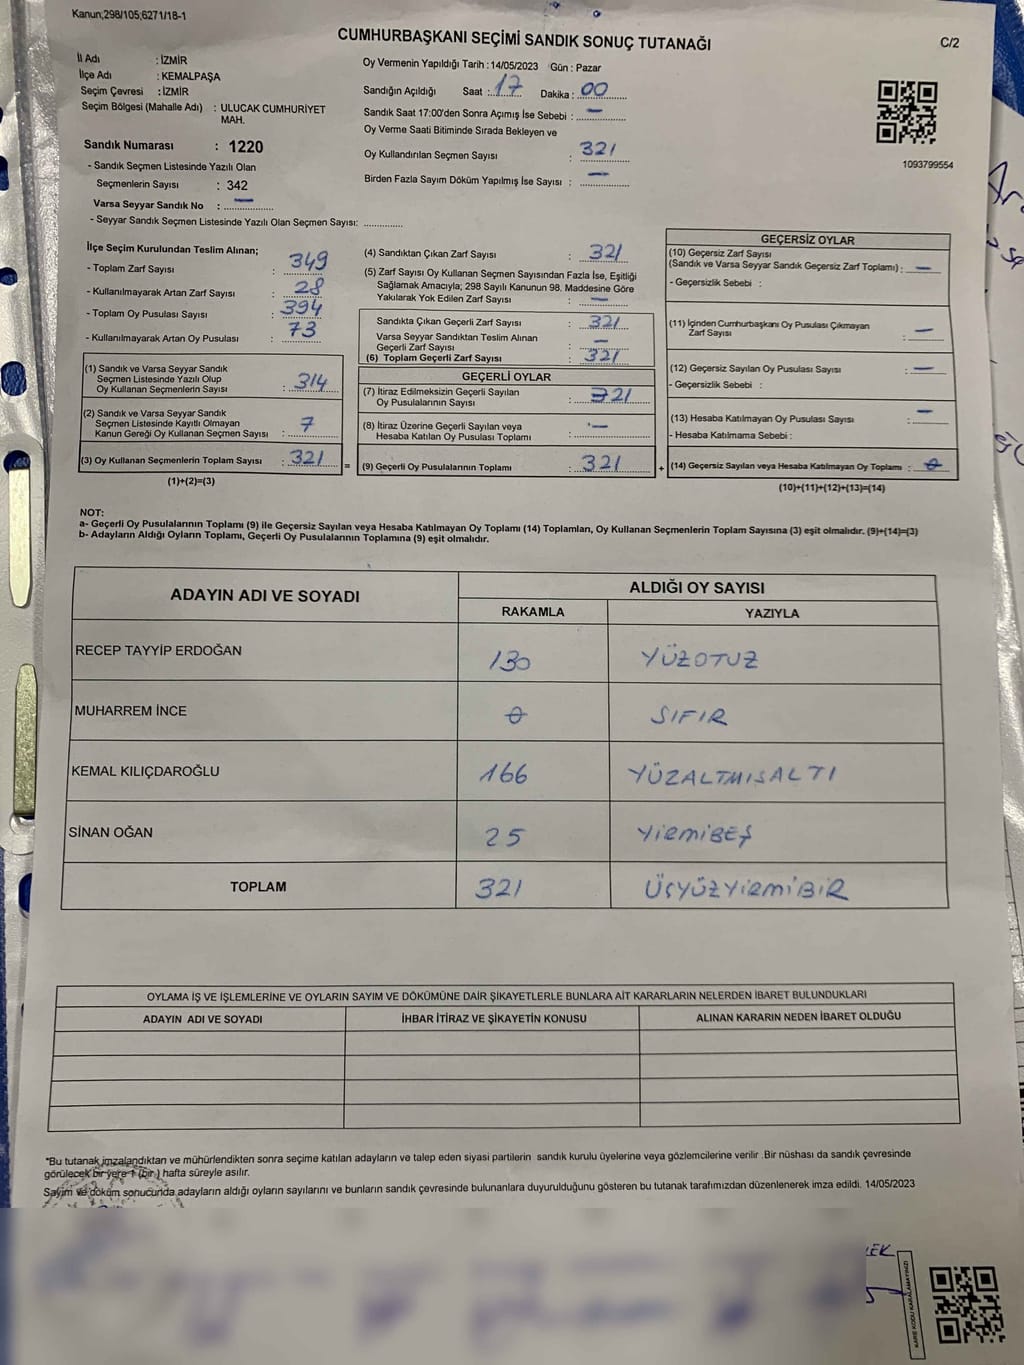 Kanun;298/105;6271/18-1
CUMHURBAŞKANI SEÇİMİ SANDIK SONUÇ TUTANAĞI
C/2
İl Adı : İZMİR
İlçe Adı : KEMALPAŞA
Seçim Çevresi : İZMİR
Seçim Bölgesi (Mahalle Adı) : ULUCAK CUMHURİYET
MAH.
Sandık Numarası : 1220
- Sandık Seçmen Listesinde Yazılı Olan
Seçmenlerin Sayısı : 342
Varsa Seyyar Sandık No : —
- Seyyar Sandık Seçmen Listesinde Yazılı Olan Seçmen Sayısı: ..............
Oy Vermenin Yapıldığı Tarih : 14/05/2023 Gün : Pazar
Sandığın Açıldığı Saat : 17 Dakika : 00
Sandık Saat 17:00'den Sonra Açımış İse Sebebi : —
Oy Verme Saati Bitiminde Sırada Bekleyen ve
Oy Kullandırılan Seçmen Sayısı : 321
Birden Fazla Sayım Döküm Yapılmış İse Sayısı : —
1093799554
İlçe Seçim Kurulundan Teslim Alınan;
- Toplam Zarf Sayısı : 349
- Kullanılmayarak Artan Zarf Sayısı : 28
- Toplam Oy Pusulası Sayısı : 394
- Kullanılmayarak Artan Oy Pusulası : 73
(1) Sandık ve Varsa Seyyar Sandık
Seçmen Listesinde Yazılı Olup
Oy Kullanan Seçmenlerin Sayısı : 314
(2) Sandık ve Varsa Seyyar Sandık
Seçmen Listesinde Kayıtlı Olmayan
Kanun Gereği Oy Kullanan Seçmen Sayısı : 7
(3) Oy Kullanan Seçmenlerin Toplam Sayısı : 321
(1)+(2)=(3)
(4) Sandıktan Çıkan Zarf Sayısı : 321
(5) Zarf Sayısı Oy Kullanan Seçmen Sayısından Fazla İse, Eşitliği
Sağlamak Amacıyla; 298 Sayılı Kanunun 98. Maddesine Göre
Yakılarak Yok Edilen Zarf Sayısı : —
Sandıkta Çıkan Geçerli Zarf Sayısı : 321
Varsa Seyyar Sandıktan Teslim Alınan
Geçerli Zarf Sayısı : —
(6) Toplam Geçerli Zarf Sayısı : 321
GEÇERLİ OYLAR
(7) İtiraz Edilmeksizin Geçerli Sayılan
Oy Pusulalarının Sayısı : 321
(8) İtiraz Üzerine Geçerli Sayılan veya
Hesaba Katılan Oy Pusulası Toplamı : —
= (9) Geçerli Oy Pusulalarının Toplamı : 321
GEÇERSİZ OYLAR
(10) Geçersiz Zarf Sayısı
(Sandık ve Varsa Seyyar Sandık Geçersiz Zarf Toplamı) : —
- Geçersizlik Sebebi :
(11) İçinden Cumhurbaşkanı Oy Pusulası Çıkmayan
Zarf Sayısı : —
(12) Geçersiz Sayılan Oy Pusulası Sayısı : —
- Geçersizlik Sebebi :
(13) Hesaba Katılmayan Oy Pusulası Sayısı : —
- Hesaba Katılmama Sebebi :
+ (14) Geçersiz Sayılan veya Hesaba Katılmayan Oy Toplamı : 0
(10)+(11)+(12)+(13)=(14)
NOT:
a- Geçerli Oy Pusulalarının Toplamı (9) ile Geçersiz Sayılan veya Hesaba Katılmayan Oy Toplamı (14) Toplamları, Oy Kullanan Seçmenlerin Toplam Sayısına (3) eşit olmalıdır. (9)+(14)=(3)
b- Adayların Aldığı Oyların Toplamı, Geçerli Oy Pusulalarının Toplamına (9) eşit olmalıdır.
ADAYIN ADI VE SOYADI
ALDIĞI OY SAYISI
RAKAMLA YAZIYLA
RECEP TAYYİP ERDOĞAN 130 YÜZOTUZ
MUHARREM İNCE 0 SIFIR
KEMAL KILIÇDAROĞLU 166 YÜZALTMIŞALTI
SİNAN OĞAN 25 YİRMİBEŞ
TOPLAM 321 ÜÇYÜZYİRMİBİR
OYLAMA İŞ VE İŞLEMLERİNE VE OYLARIN SAYIM VE DÖKÜMÜNE DAİR ŞİKAYETLERLE BUNLARA AİT KARARLARIN NELERDEN İBARET BULUNDUKLARI
ADAYIN ADI VE SOYADI İHBAR İTİRAZ VE ŞİKAYETİN KONUSU ALINAN KARARIN NEDEN İBARET OLDUĞU
*Bu tutanak imzalandıktan ve mühürlendikten sonra seçime katılan adayların ve talep eden siyasi partilerin sandık kurulu üyelerine veya gözlemcilerine verilir .Bir nüshası da sandık çevresinde
görülecek bir yere 1 (bir ) hafta süreyle asılır.
Sayım ve döküm sonucunda adayların aldığı oyların sayılarını ve bunların sandık çevresinde bulunanlara duyurulduğunu gösteren bu tutanak tarafımızdan düzenlenerek imza edildi. 14/05/2023
KARE KODU KARALAMAYINIZ!